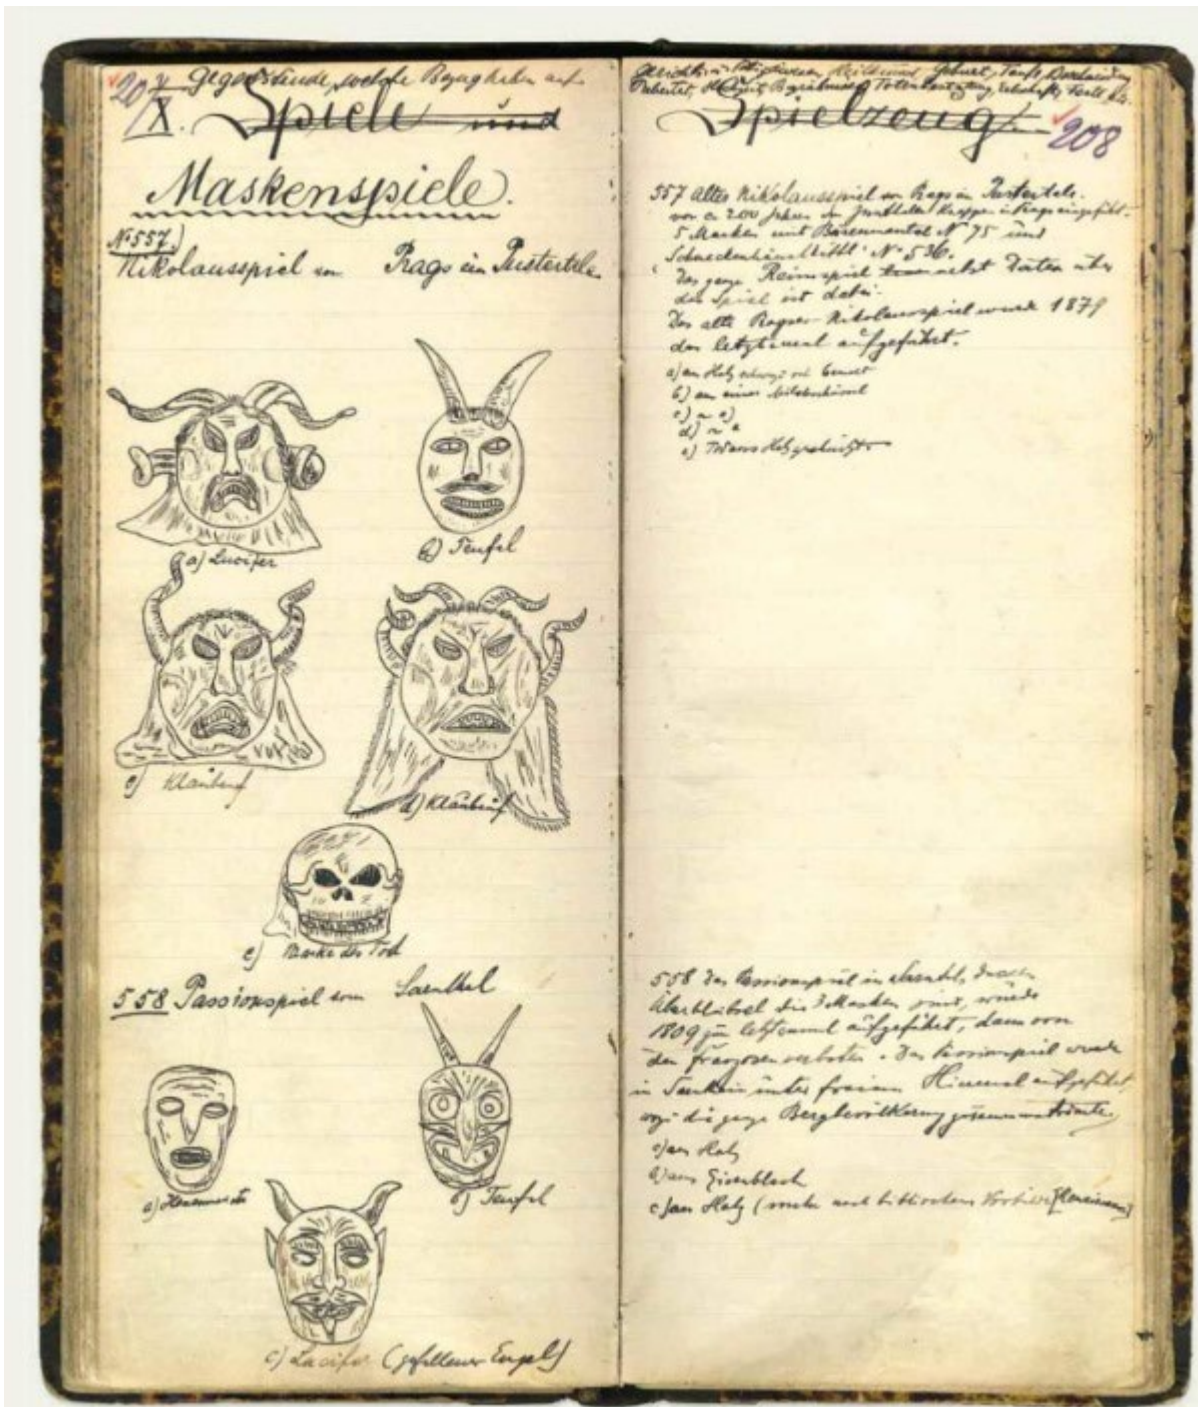 207
Gegenstände, welche Bezug haben auf
X. Spiele und
Maskenspiele.
No 557.)
Nikolausspiel von Prags im Pustertale.
a) Lucifer
b) Teufel
c) Klaubauf
d) Klaubauf
e) Maske des Tod
558 Passionspiel vom
a)
b) Teufel
c) Lucifer (gefallener Engel)
Geburt, Taufe,
Hochzeit, Begräbnis,
Spielzeug.
208
557 Altes Nikolausspiel von Prags im Pustertale.
vor ca 200 Jahren in Prags eingeführt.
5 Masken mit Bärenmantel No 75 und
No 536.
Das ganze Reimspiel nebst Daten über
das Spiel ist dabei.
Das alte Pragser Nikolausspiel wurde 1879
das letztemal aufgeführt.
a) aus Holz
b) aus einer
c) ~ a)
d) ~ "
e) Tod aus Holz geschnitzt
558 Das Passionspiel in
Überbleibsel die 3 Masken sind, wurde
1809 zum letztenmal aufgeführt, dann von
den Franzosen verboten. Das Passionspiel wurde
in unter freiem Himmel aufgeführt,
wozu die ganze Bergbevölkerung zusammenströmte.
a) aus Holz
b) aus Eisenblech
c) aus Holz (